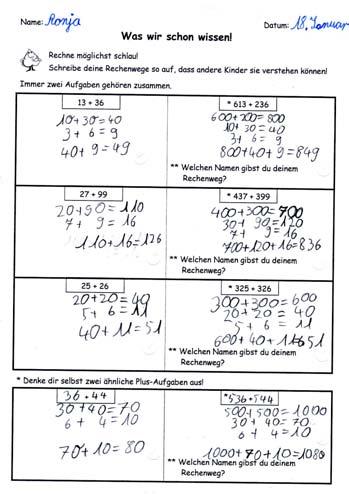 Name: Ronja
Datum: 18. Januar
Was wir schon wissen!
Rechne möglichst schlau!
Schreibe deine Rechenwege so auf, dass andere Kinder sie verstehen können!
Immer zwei Aufgaben gehören zusammen.
13 + 36
10+30=40
3+6=9
40+9=49
* 613 + 236
600+200=800
10+30=40
3+6=9
800+40+9=849
** Welchen Namen gibst du deinem
Rechenweg?
27 + 99
20+90=110
7+9=16
110+16=126
* 437 + 399
400+300=700
30+90=120
7+9=16
700+120+16=836
** Welchen Namen gibst du deinem
Rechenweg?
25 + 26
20+20=40
5+6=11
40+11=51
* 325 + 326
300+300=600
20+20=40
5+6=11
600+40+11=651
** Welchen Namen gibst du deinem
Rechenweg?
* Denke dir selbst zwei ähnliche Plus-Aufgaben aus!
36+44
30+40=70
6+4=10
70+10=80
*536+544
500+500=1000
30+40=70
6+4=10
1000+70+10=1080
** Welchen Namen gibst du deinem
Rechenweg?